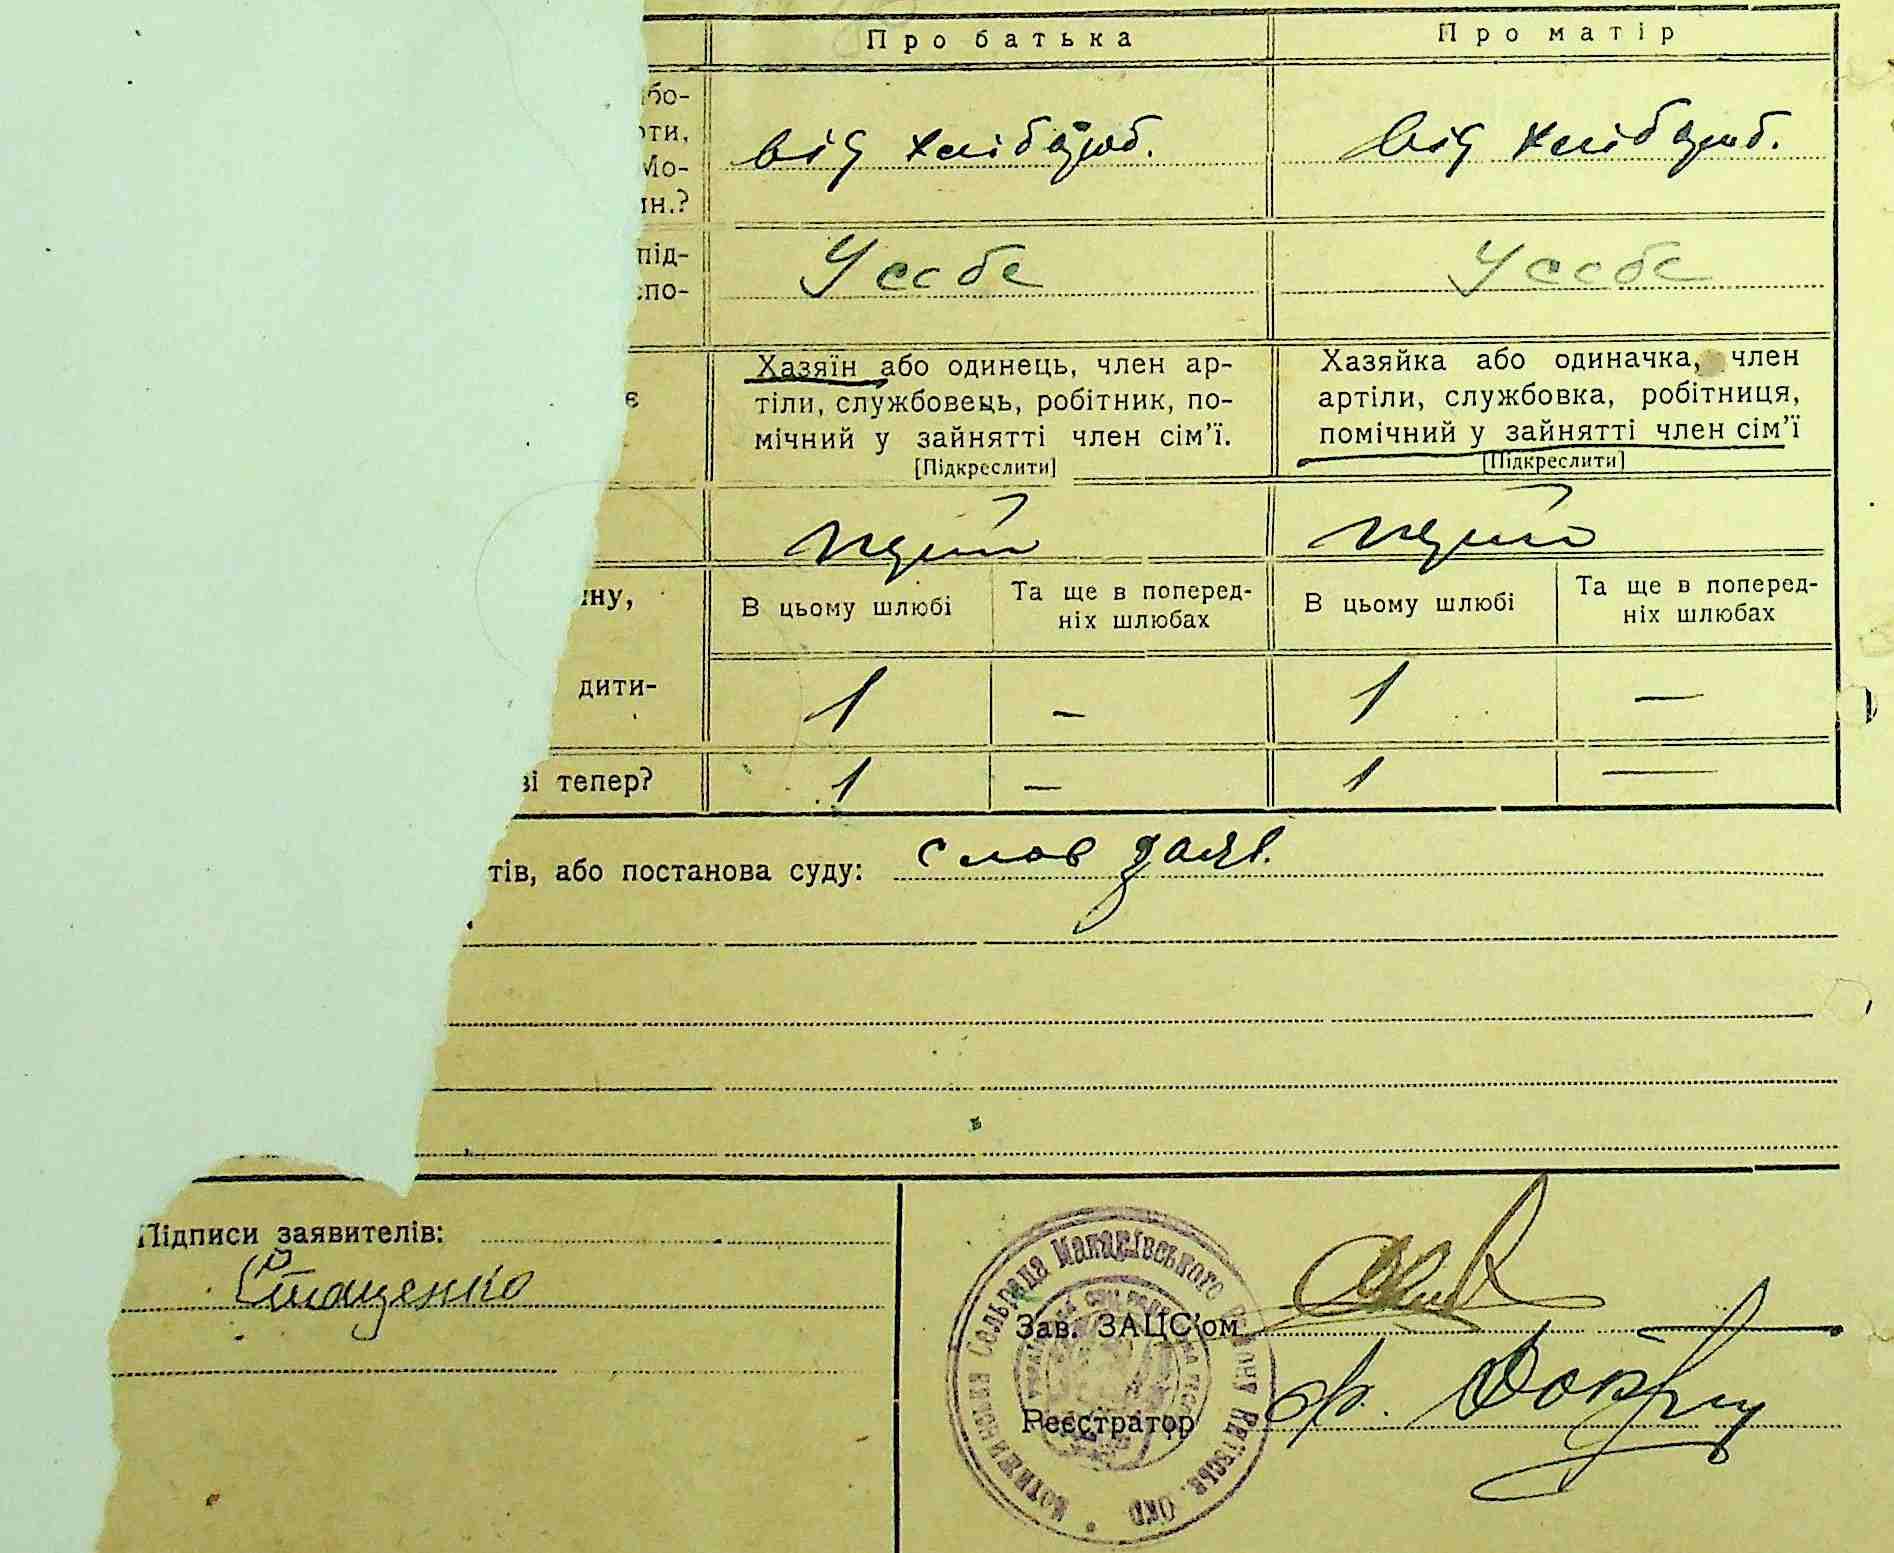 Про батька
Про матір
бо-
оти,
Мо-
ин.?
від хлібороб.
від хлібороб.
під-
спо-
У себе
У себе
є
Хазяїн або одинець, член ар-
тіли, службовець, робітник, по-
мічний у зайнятті член сім'ї.
[Підкреслити]
Хазяйка або одиначка, член
артіли, службовка, робітниця,
помічний у зайнятті член сім'ї
[Підкреслити]
ну,
В цьому шлюбі
Та ще в поперед-
ніх шлюбах
В цьому шлюбі
Та ще в поперед-
ніх шлюбах
дити-
1
–
1
–
ві тепер?
1
–
1
–
тів, або постанова суду: слов заяв.
Підписи заявителів:
Стаценко
Зав. ЗАЦС'ом
Реєстратор
Сельрада Макарівського Району Київськ. Окр.